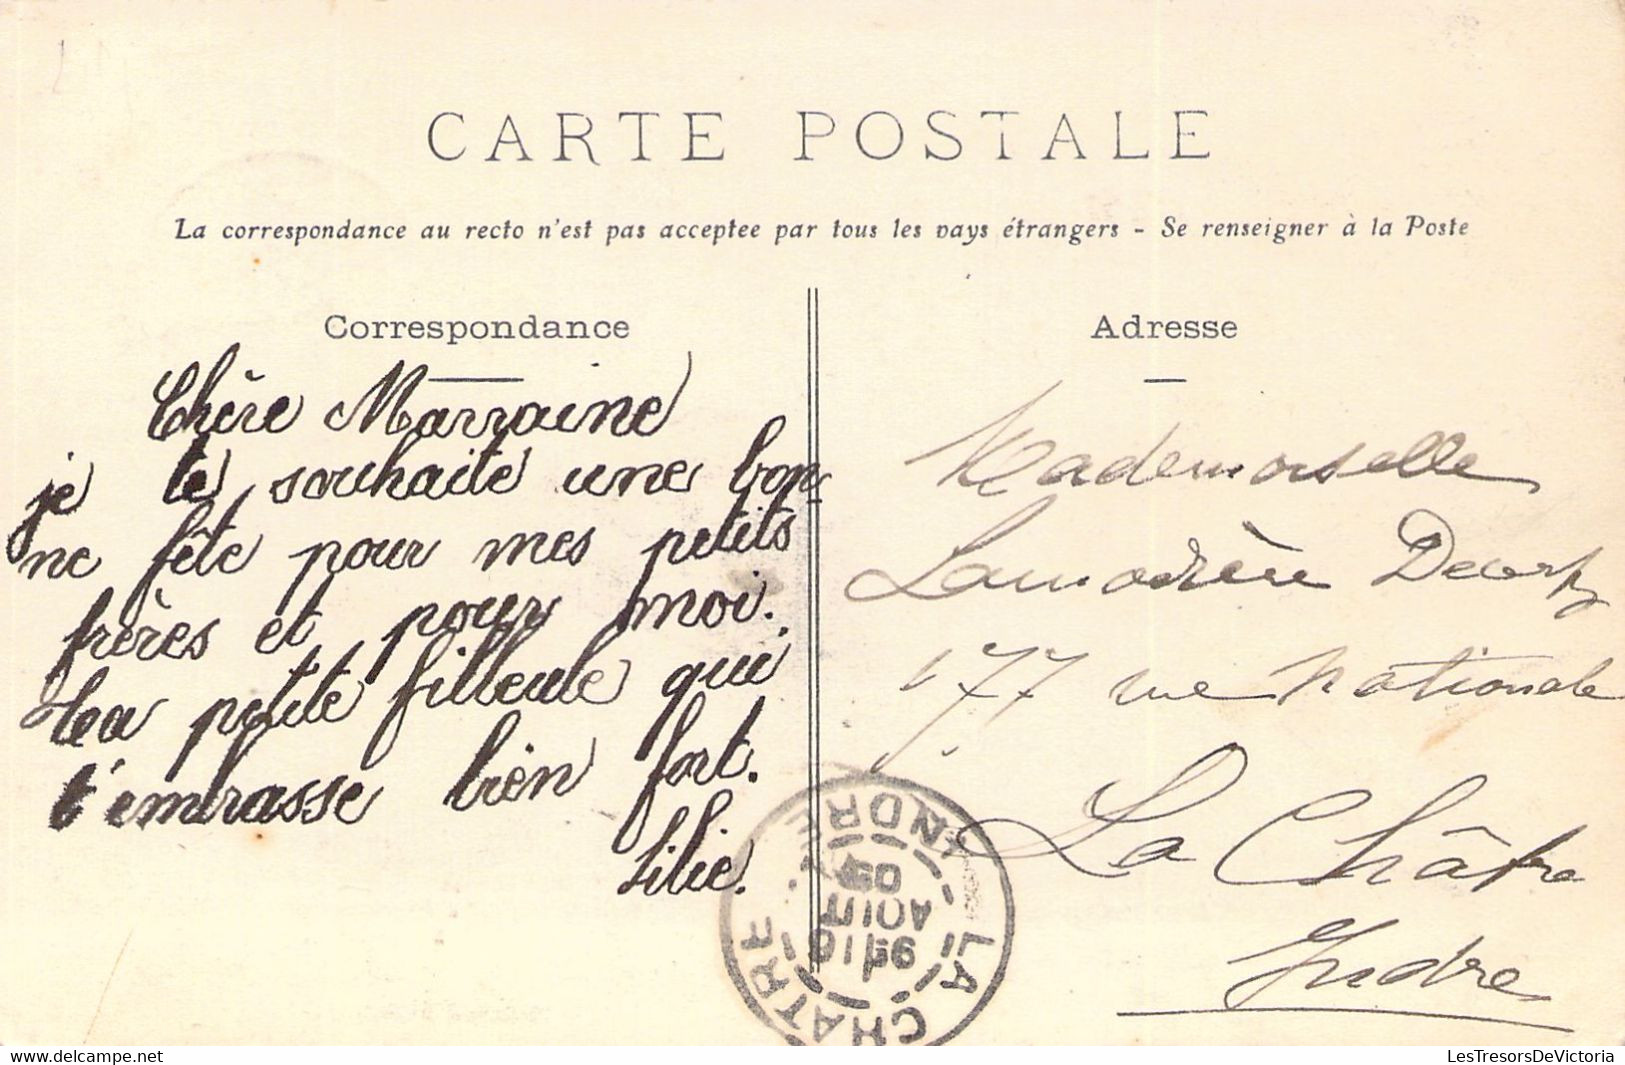 CARTE POSTALE
La correspondance au recto n'est pas acceptee par tous les pays étrangers - Se renseigner à la Poste
Correspondance
Chère Marraine
je te souhaite une bon-
ne fête pour mes petits
frères et pour moi.
ta petite filleule qui
t'embrasse bien fort.
Lilie.
Adresse
Mademoiselle
177 rue Nationale
La Châtre
Indre
LA CHATRE
INDRE
AOUT
05
LesTresorsDeVictoria
www.delcampe.net